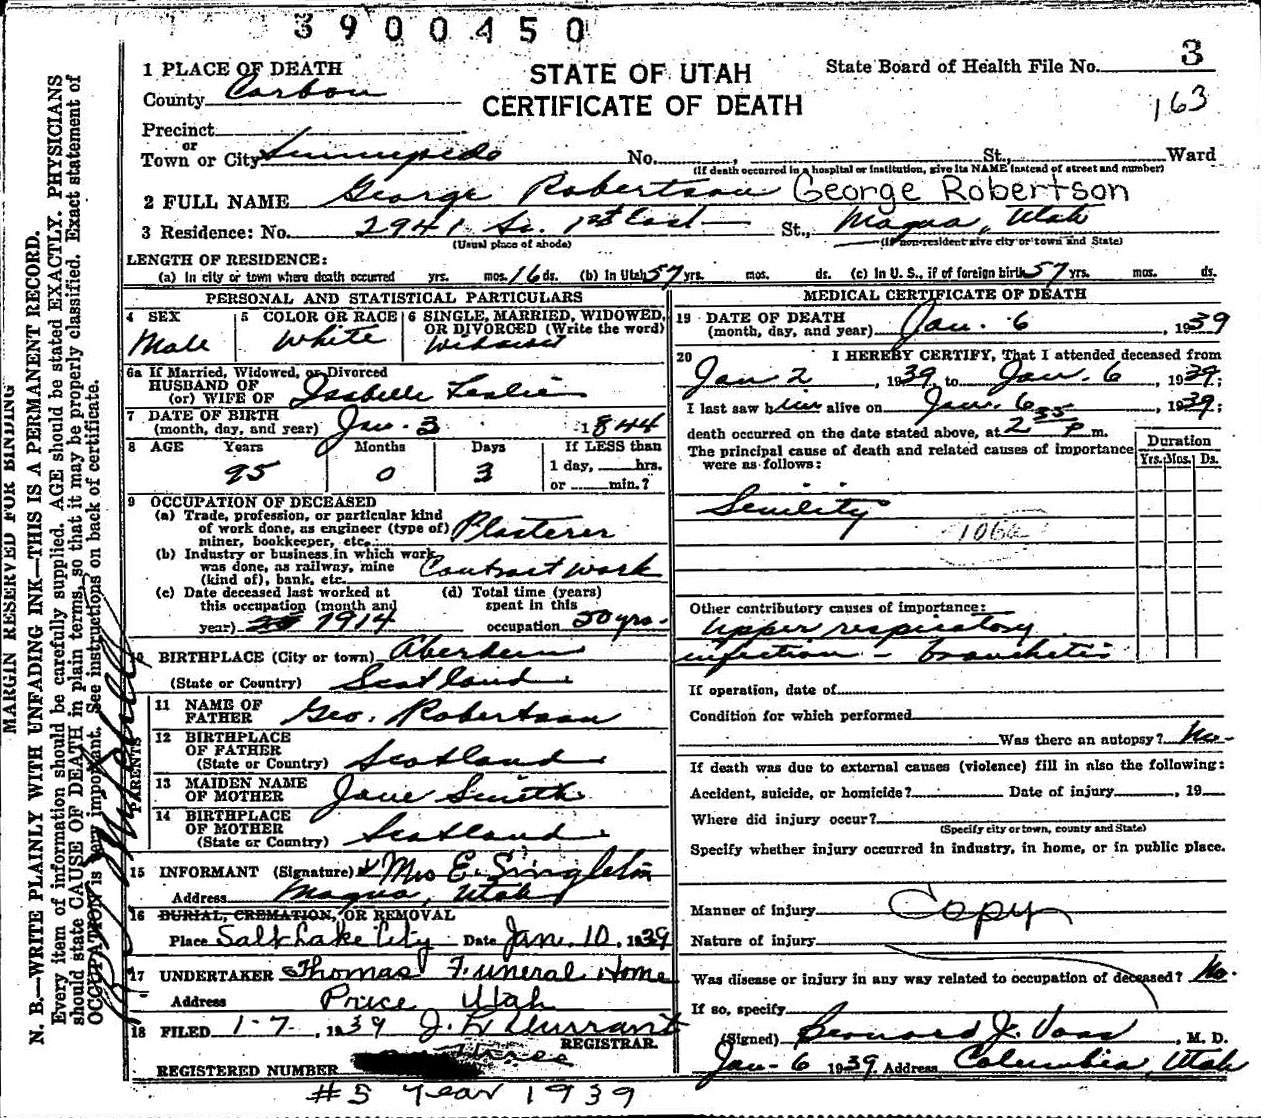 3900450
1 PLACE OF DEATH
County Carbon
STATE OF UTAH
CERTIFICATE OF DEATH
State Board of Health File No. 3
163
Precinct
or
Town or City Sunnyside No. , St., Ward
(If death occurred in a hospital or institution, give its NAME instead of street and number)
2 FULL NAME George Robertson George Robertson
3 Residence: No. 2941 So. 1st East St., Magna, Utah
(Usual place of abode) (If non-resident give city or town and State)
LENGTH OF RESIDENCE:
(a) In city or town where death occurred yrs. mos. 16 ds. (b) In Utah 57 yrs. mos. ds. (c) In U. S., if of foreign birth 57 yrs. mos. ds.
PERSONAL AND STATISTICAL PARTICULARS
4 SEX
Male
5 COLOR OR RACE
White
6 SINGLE, MARRIED, WIDOWED,
OR DIVORCED (Write the word)
Widowed
6a If Married, Widowed, or Divorced
HUSBAND OF
(or) WIFE OF Isabelle Leslie
7 DATE OF BIRTH
(month, day, and year) Jan. 3 1844
8 AGE Years Months Days If LESS than
95 0 3 1 day, hrs.
or min.?
9 OCCUPATION OF DECEASED
(a) Trade, profession, or particular kind
of work done, as engineer (type of)
miner, bookkeeper, etc. Plasterer
(b) Industry or business in which work
was done, as railway, mine
(kind of), bank, etc. Contract work
(c) Date deceased last worked at
this occupation (month and
year) 1914
(d) Total time (years)
spent in this
occupation 50 yrs.
10 BIRTHPLACE (City or town) Aberdeen
(State or Country) Scotland
PARENTS
11 NAME OF
FATHER Geo. Robertson
12 BIRTHPLACE
OF FATHER
(State or Country) Scotland
13 MAIDEN NAME
OF MOTHER Jane Smith
14 BIRTHPLACE
OF MOTHER
(State or Country) Scotland
15 INFORMANT (Signature) x Mrs E. Singleton
Address Magna, Utah
16 BURIAL, CREMATION, OR REMOVAL
Place Salt Lake City Date Jan. 10, 1939
17 UNDERTAKER Thomas Funeral Home
Address Price Utah
18 FILED 1-7, 1939 J. L. Durrant
REGISTRAR.
REGISTERED NUMBER Three
#5 Year 1939
MEDICAL CERTIFICATE OF DEATH
19 DATE OF DEATH
(month, day, and year) Jan. 6, 1939
20 I HEREBY CERTIFY, That I attended deceased from
Jan 2, 1939, to Jan. 6, 1939;
I last saw him alive on Jan. 6, 1939;
death occurred on the date stated above, at 2 35 P m.
The principal cause of death and related causes of importance
were as follows:
Duration
Yrs. Mos. Ds.
Senility
106a
Other contributory causes of importance:
Upper respiratory
infection - bronchitis
If operation, date of
Condition for which performed
Was there an autopsy? No-
If death was due to external causes (violence) fill in also the following:
Accident, suicide, or homicide? Date of injury , 19
Where did injury occur?
(Specify city or town, county and State)
Specify whether injury occurred in industry, in home, or in public place.
Manner of injury Copy
Nature of injury
Was disease or injury in any way related to occupation of deceased? No.
If so, specify
(Signed) Bernard J. Voss, M. D.
Jan-6 1939 Address Columbia, Utah
MARGIN RESERVED FOR BINDING
N. B.—WRITE PLAINLY WITH UNFADING INK—THIS IS A PERMANENT RECORD.
Every item of information should be carefully supplied. AGE should be stated EXACTLY. PHYSICIANS
should state CAUSE OF DEATH in plain terms, so that it may be properly classified. Exact statement of
OCCUPATION is very important. See instructions on back of certificate.